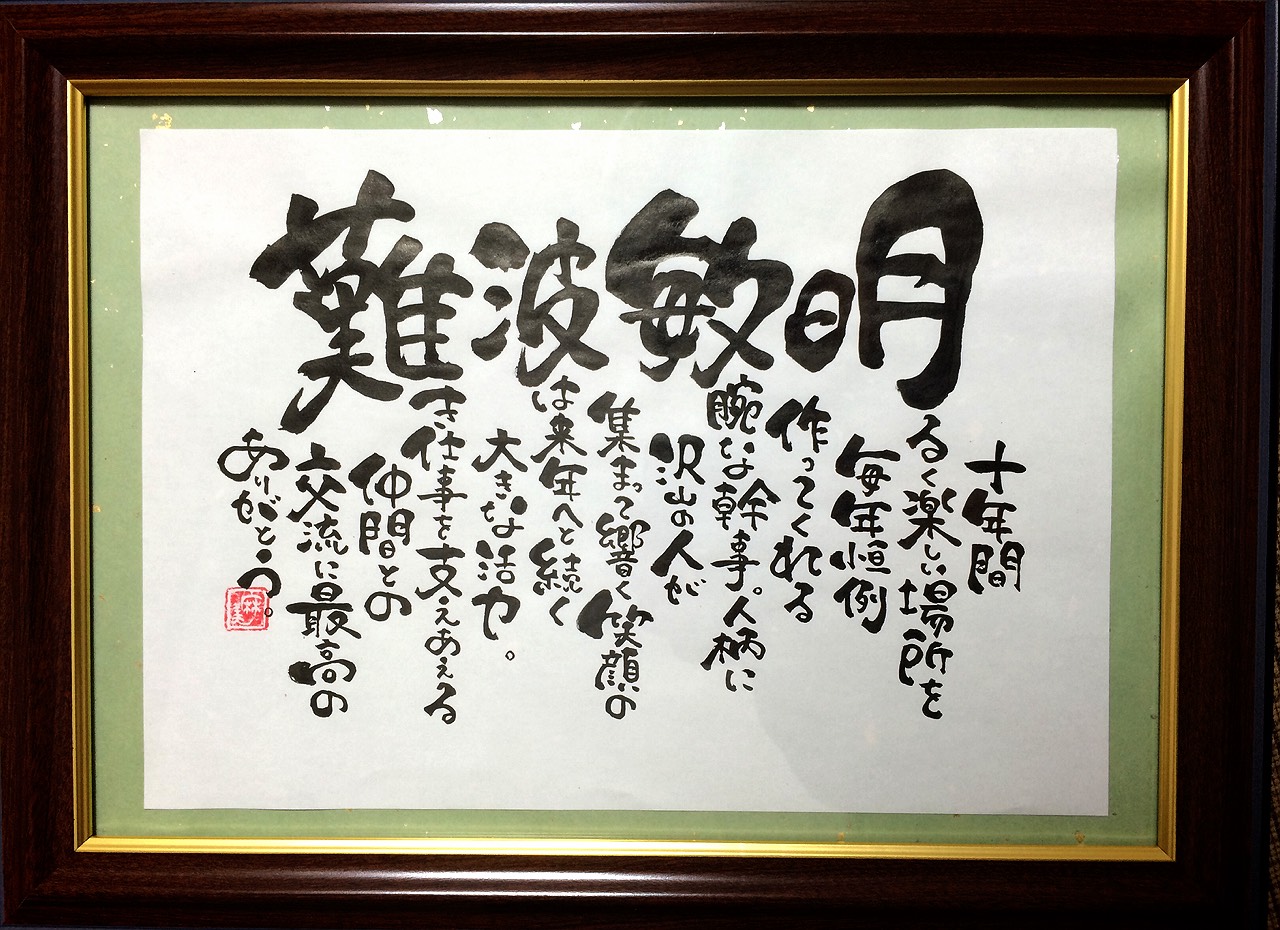 難波敏明
十年間
るく楽しい場所を
毎年恒例
作ってくれる
腕な幹事。人柄に
沢山の人が
集まって響く笑顔の
は来年へと続く
大きな活力。
き仕事を支えあえる
仲間との
交流に最高の
ありがとう。